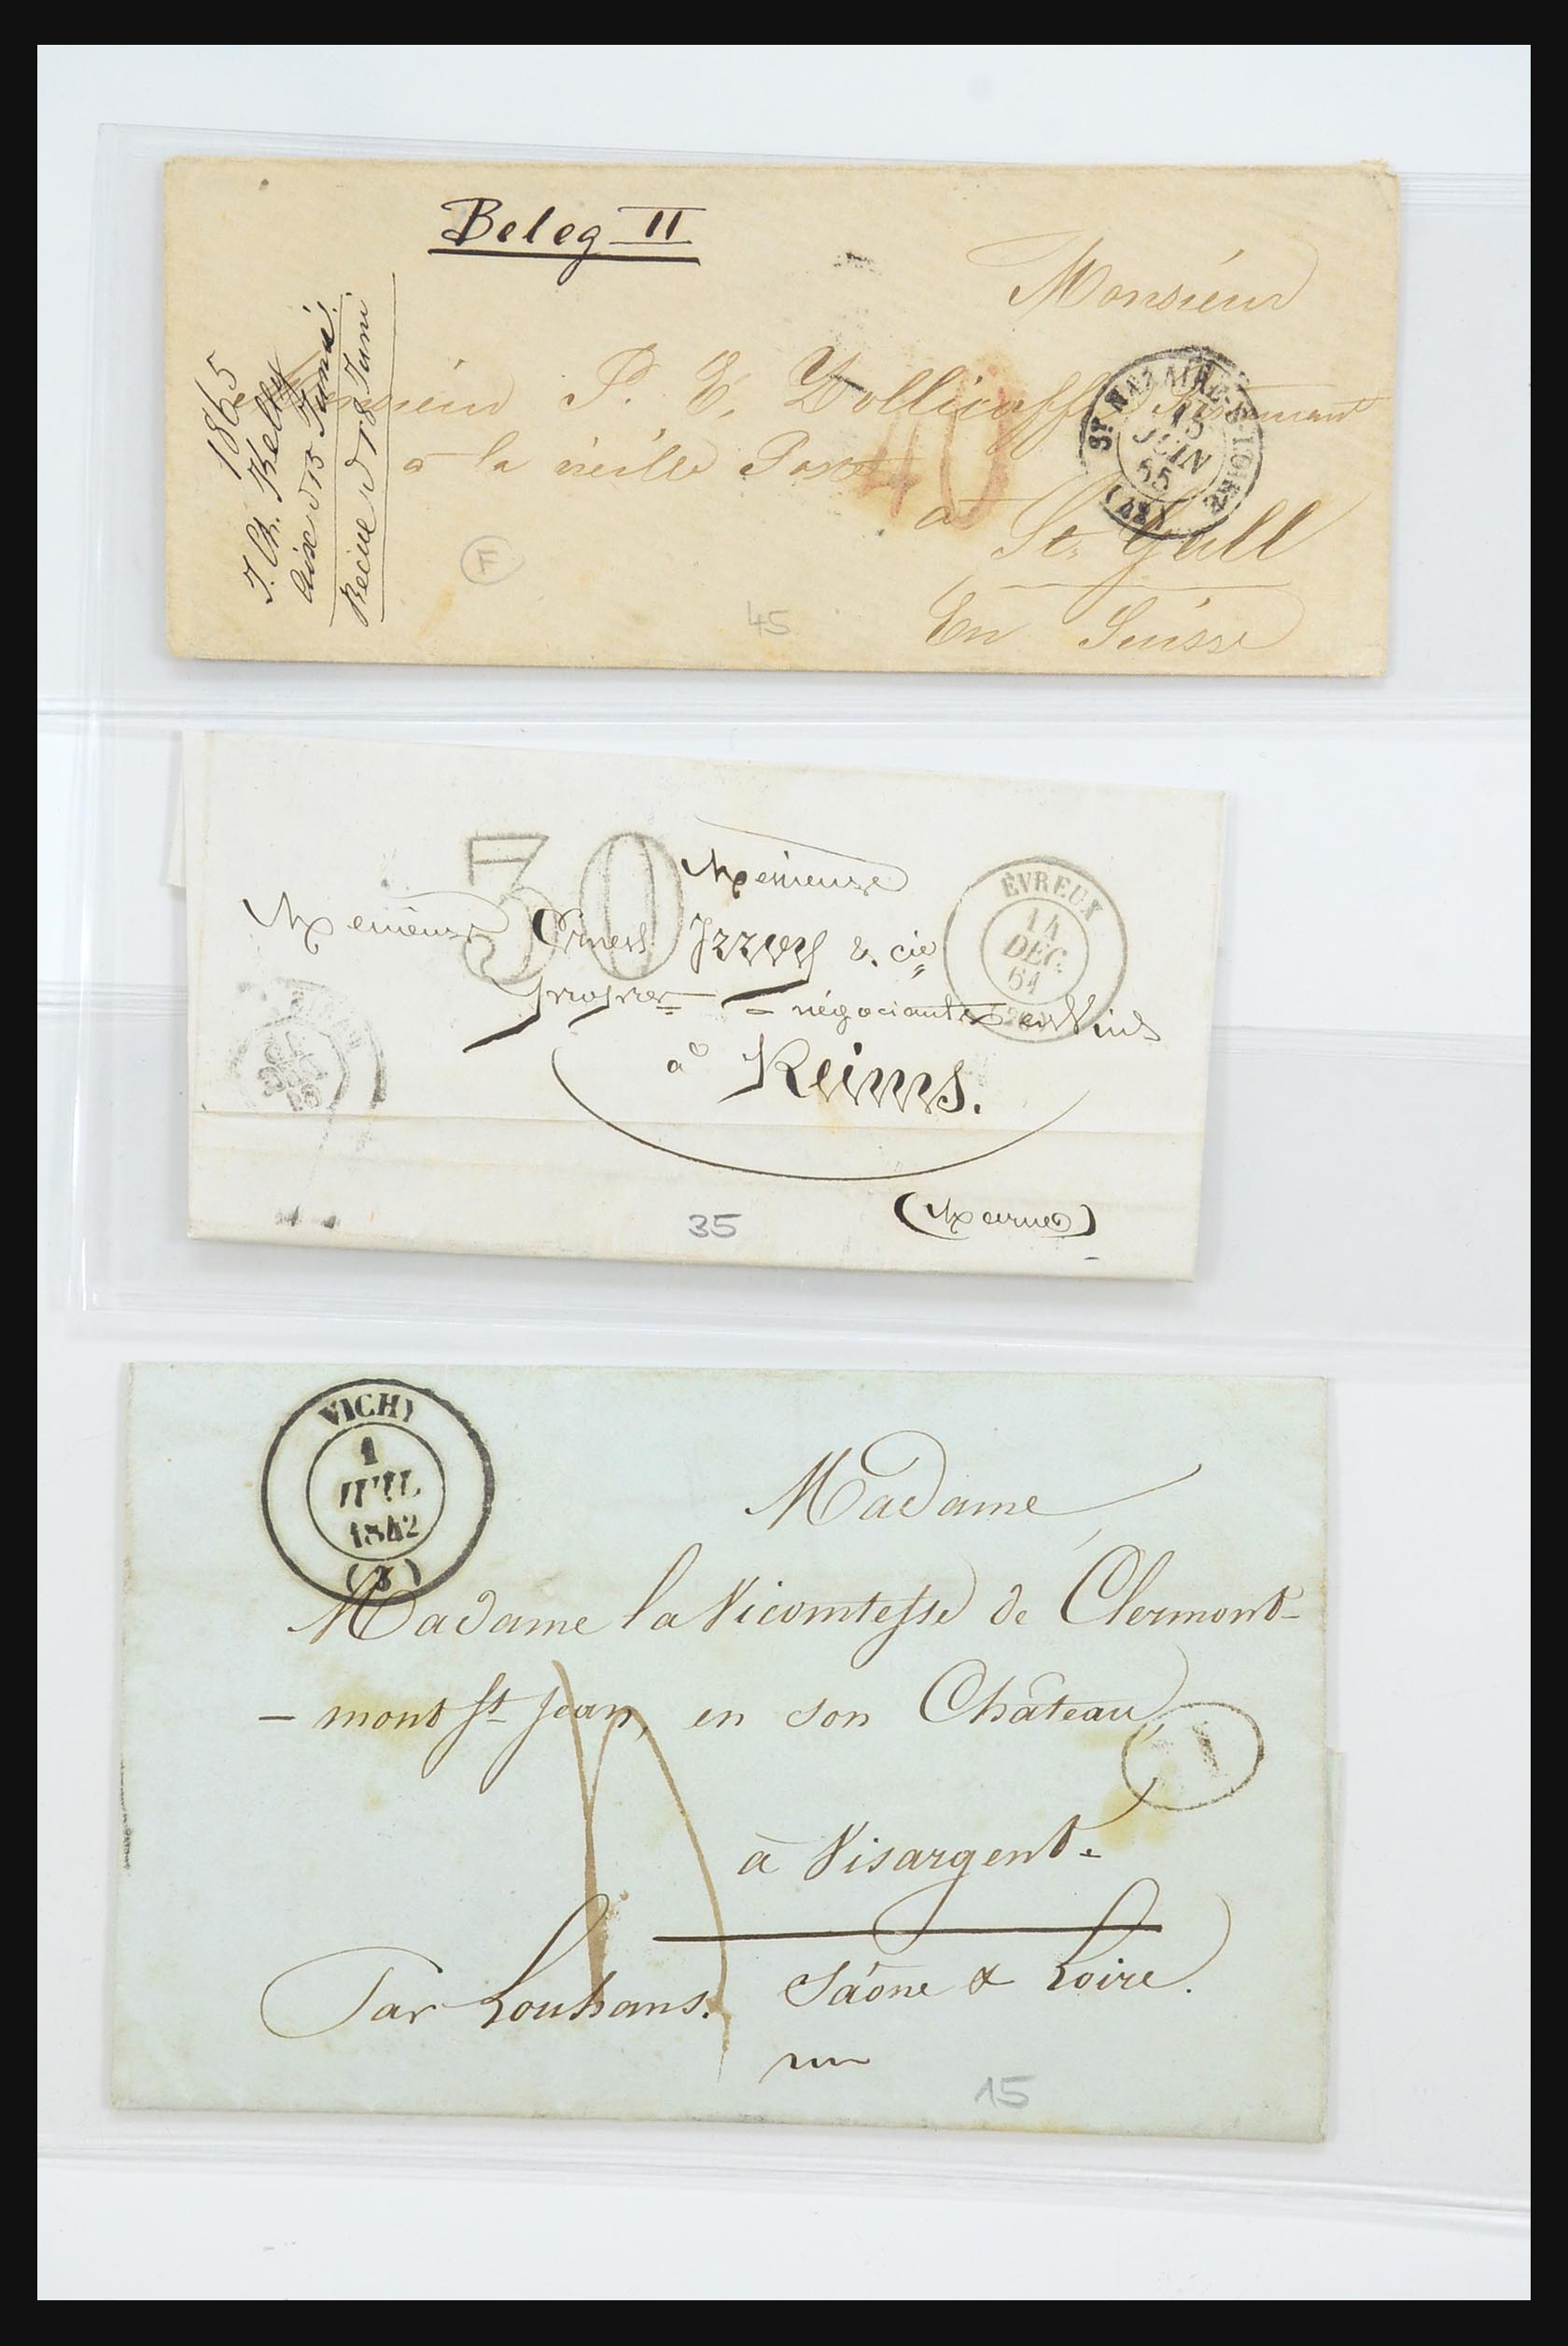 Beleg II
Monsieur
Monsieur P. E.
à la vieille Poste
à St. Gall
En Suisse
1865
J. Ch. Kelly
Recue d 18 Juni
ST NAZAIRE-S-LOIRE
15
JUIN
65
(42)
40
F
45
30
Messieurs
Messieurs Ernest Irroy & cie
propres = négociants en Vins
à Reims.
(Marne)
ÉVREUX
14
DEC.
64
35
VICHY
1
JUIL
1842
(3)
Madame
Madame la Vicomtesse de Clermont-
- mont St Jean, en son Château
1
à Visargent.
Par Louhans. Saône & Loire.
15